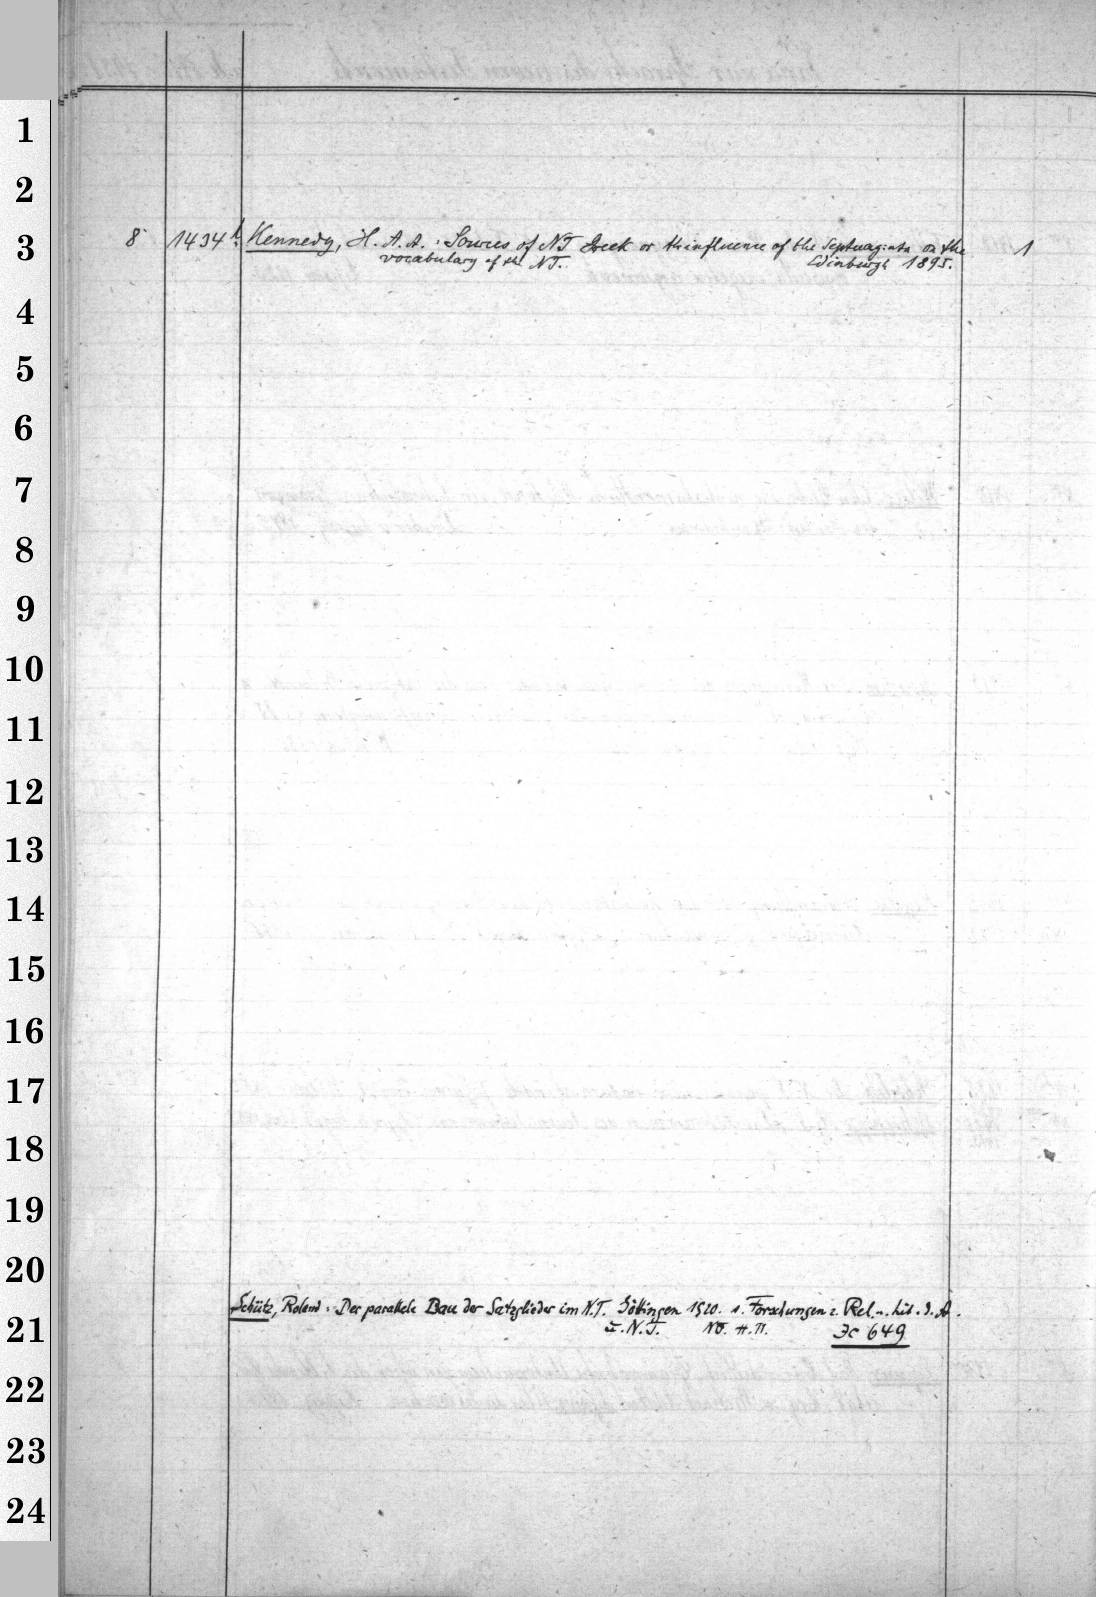 1
2
8° 1434 h. Kennedy, H. A. A. : Sources of NT Greek or the influence of the Septuaginta on the 1
3
vocabulary of the NT. Edinburgh 1895.
4
5
6
7
8
9
10
11
12
13
14
15
16
17
18
19
20
Schütz, Roland : Der parallele Bau der Satzglieder im N.T. Göttingen 1920. s. Forschungen z. Rel. u. Lit. d. A.
21
u. N. T. NF. H. 11. Jc 649
22
23
24